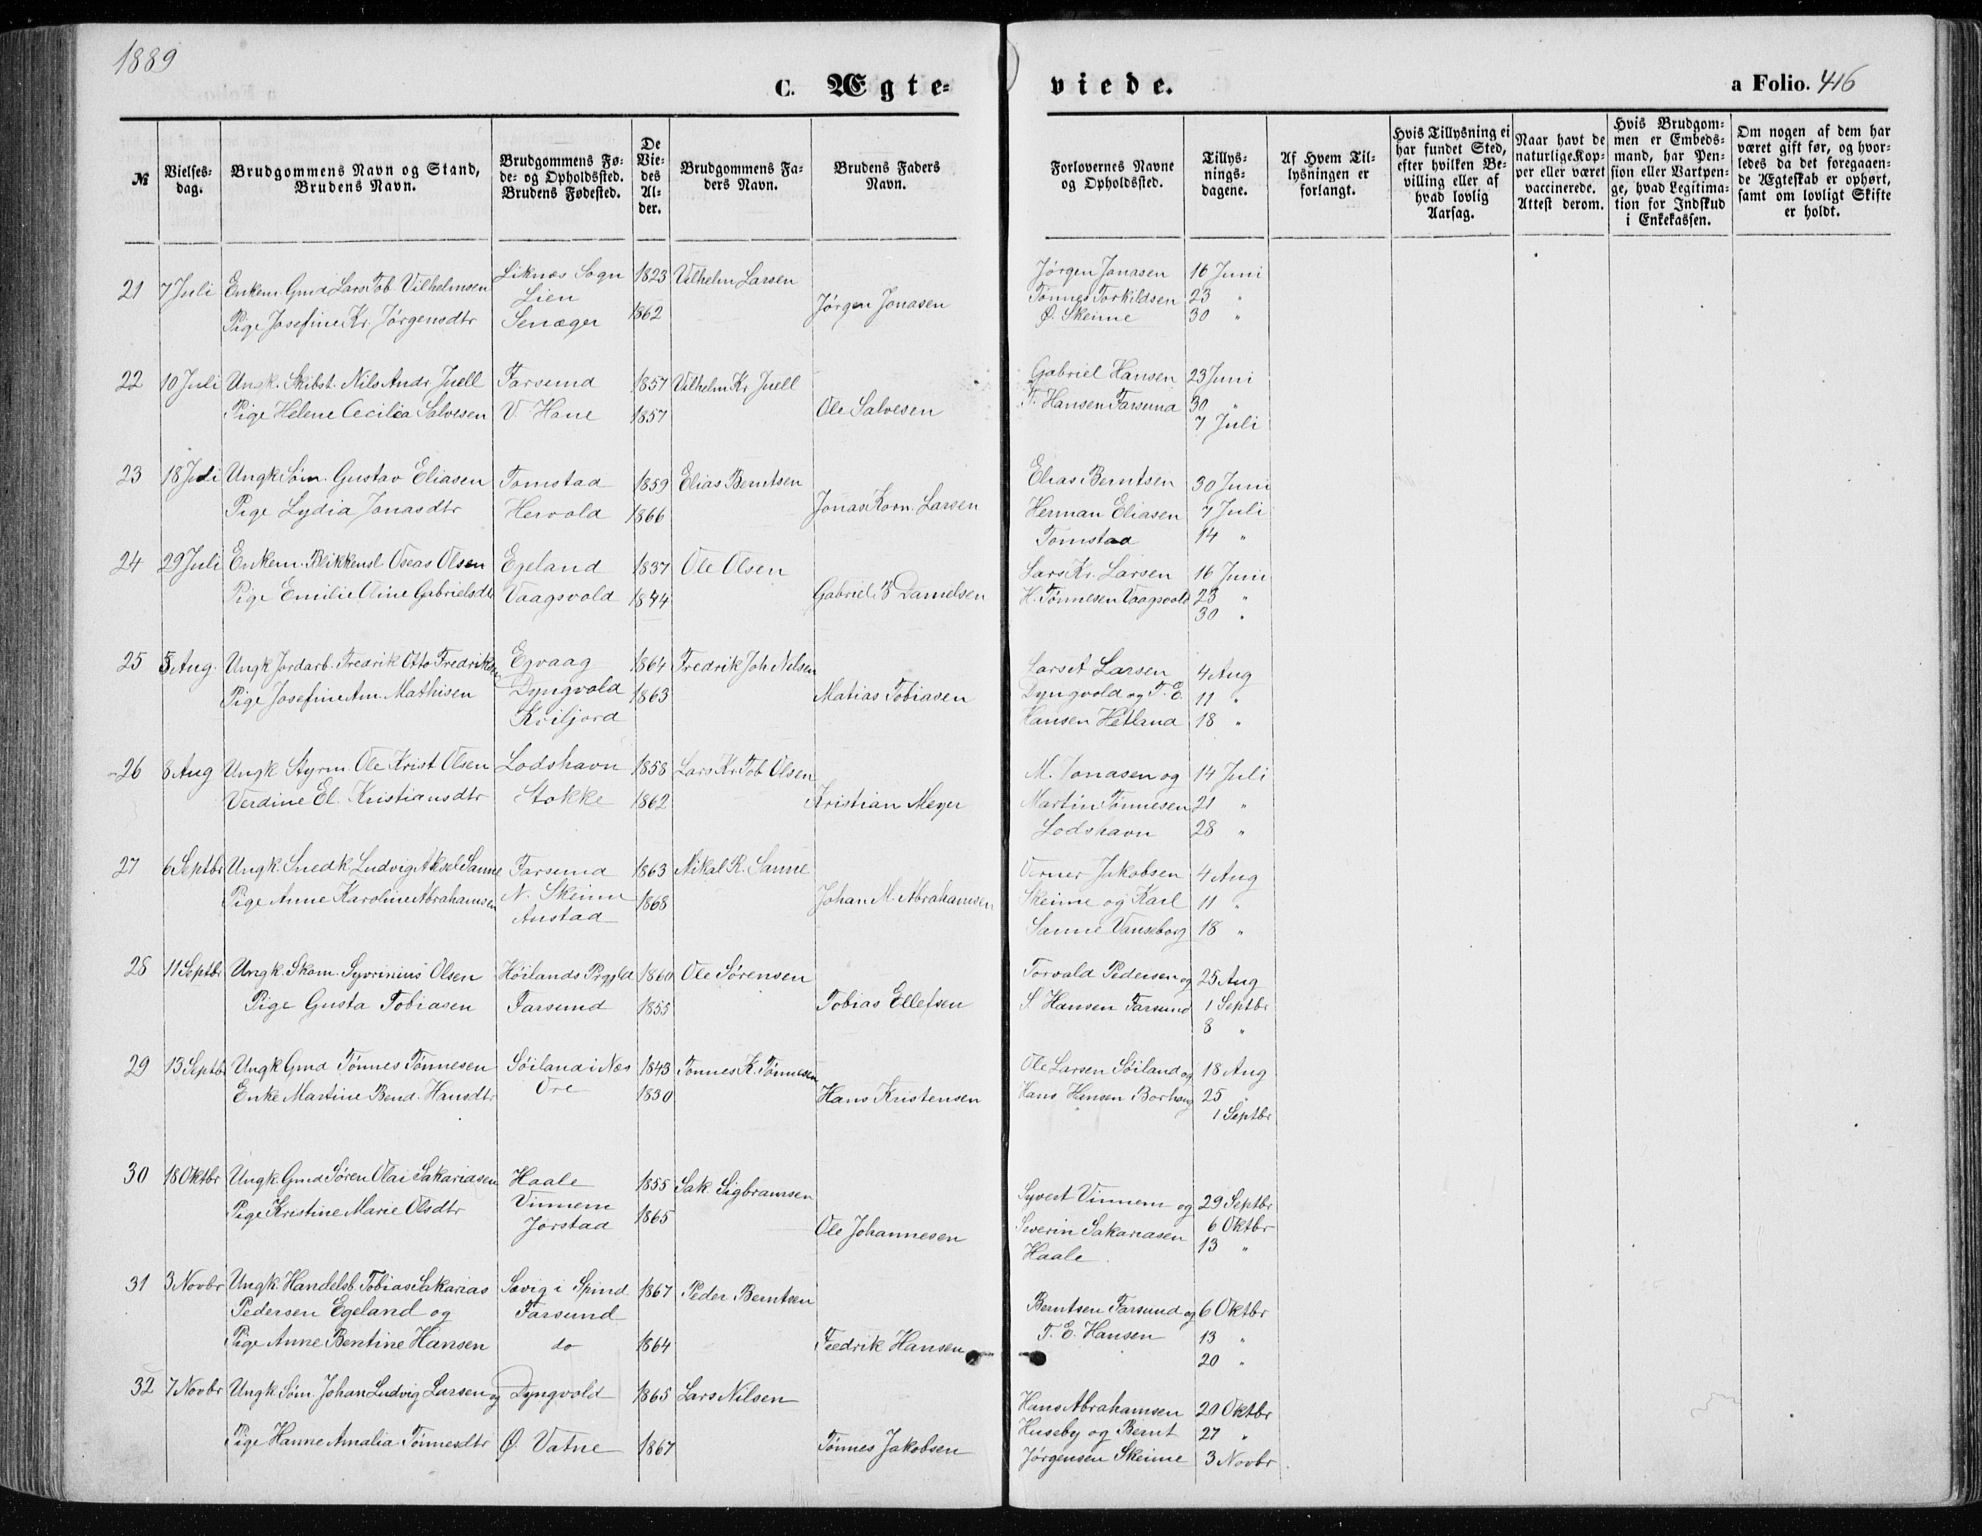 1889
C. Ægte-viede.
a Folio. 416
№
Vielses-dag.
Brudgommens Navn og Stand, Brudens Navn.
Brudgommens Fø-de- og Opholdssted. Brudens Fødested.
De Vie-des Al-der.
Brudgommens Fa-ders Navn.
Brudens Faders Navn.
Forlovernes Navne og Opholdssted.
Tillys-nings-dagene.
Af Hvem Til-lysningen er forlangt.
Hvis Tillysning ei har fundet Sted, efter hvilken Be-villing eller af hvad lovlig Aarsag.
Naar havt de naturlige Kop-per eller været vaccinerede. Attest derom.
Hvis Brudgom-men er Embeds-mand, har Pen-sion eller Vartpen-ge, hvad Legitima-tion for Indskud i Enkekassen.
Om nogen af dem har været gift før, og hvor-ledes da det foregaaen-de Ægteskab er ophørt, samt om lovligt Skifte er holdt.
21 7 Juli Enkem. Gmd Lars Tob. Vilhelmsen Liknæs Sogn 1823 Vilhelm Larsen Jørgen Jonasen 16 Juni
Lien Jørgen Jonasen Tønnes Torkildsen 23 "
Pige Josefine Kr. Jørgensdtr Senæger 1862 Ø. Skeime 30 "
22 10 Juli Ungk. Skibst. Nils Andr Juell Farsund 1857 Vilhelm Kr Juell Gabriel Hansen 23 Juni
Pige Helene Cecilia Salvesen V. Hane 1857 Ole Salvesen T. Hansen Farsund 30 "
7 Juli
23 18 Juli Ungk Søm. Gustav Eliasen Tomstad 1859 Elias Berntsen Elias Berntsen 30 Juni
Pige Lydia Jonasdtr Hervold 1866 Jonas Korn. Larsen Herman Eliasen 7 Juli
Tomstad 14 "
24 29 Juli Enkem. Blikkensl Oseas Olsen Egeland 1837 Ole Olsen Lars Kr. Larsen 16 Juni
Pige Emilie Oline Gabrielsdtr Vaagsvold 1844 Gabriel B Danielsen H. Tønnesen Vaagsvold 23 "
30 "
25 Aug. Ungk Jordarb. Fredrik Otto Fredriksen Egvaag 1864 Fredrik Joh Nilsen Lars A Larsen 4 Aug
Pige Josefine Am. Mathisen Dyngvold 1863 Matias Tobiasen Dyngvold og T. E. 11 "
Kviljord Hansen Hetland 18 "
26 8 Aug Ungk Styrm Ole Krist Olsen Lodshavn 1858 Lars Kr Tob Olsen M. Jonasen og 14 Juli
Verdine El. Kristiansdtr Stokke 1862 Kristian Meyer Martin Tønnesen 21 "
Lodshavn 28 "
27 6 Septbr Ungk. Snedk Ludvig Aksel Sanne Farsund 1863 Mikal R. Sanne Verner Jakobsen 4 Aug
Pige Anne Karoline Abrahamsen N. Skeime 1868 Johan M. Abrahamsen Skeime og Karl 11 "
Anstad Sanne Vanseborg 18 "
28 11 Septbr Ungk. Skom. Syvrinius Olsen Høilands Prgjld 1860 Ole Sørensen Torvald Pedersen og 25 Aug
Pige Gusta Tobiasen Farsund 1855 Tobias Ellefsen S. Hansen Farsund 1 Septbr
8 "
29 13 Septbr Ungk Gmd Tønnes Tønnesen Søiland i Næs 1843 Tønnes K. Tønnesen Ole Larsen Søiland og 18 Aug
Enke Martine Bend. Hansdtr Ore 1830 Hans Kristensen Hans Hansen Borhaug 25 "
1 Septbr
30 18 Oktbr Ungk Gmd Søren Olai Sakariasen Haale 1855 Sak. Sigbransen Syvert Vinnem og 29 Septbr
Pige Kristine Marie Olsdtr Vinnem 1865 Severin Sakariasen 6 Oktbr
Jørstad Ole Johannesen Haale 13 "
31 3 Novbr Ungk. Handelsb. Tobias Sakarias Sævig i Spind 1867 Peder Berntsen
Pedersen Egeland og Farsund Berntsen Farsund og 6 Oktbr
Pige Anne Berntine Hansen do 1864 Fredrik Hansen T. E. Hansen 13 "
20 "
32 7 Novbr Ungk. Søm. Johan Ludvig Larsen og Dyngvold 1865 Lars Nilsen Hans Abrahamsen 20 Oktbr
Huseby og Bernt 27 "
Pige Hanne Amalia Tønnesdtr Ø. Vatne 1867 Tønnes Jakobsen Jørgensen Skeime 3 Novbr